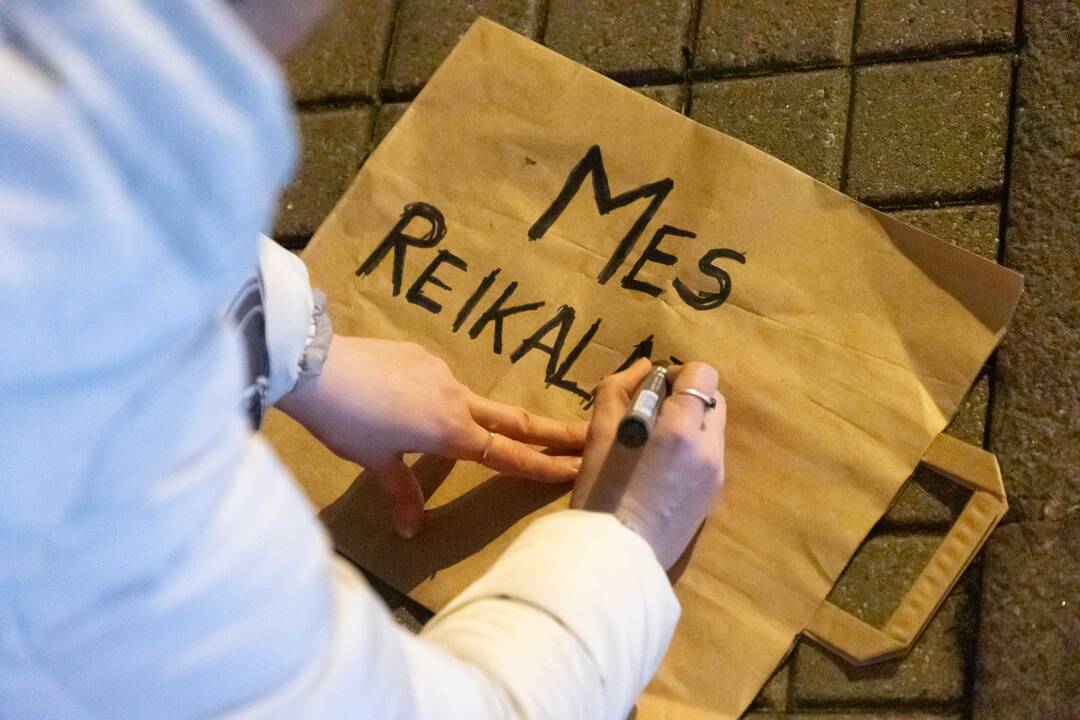 MES
REIKALA